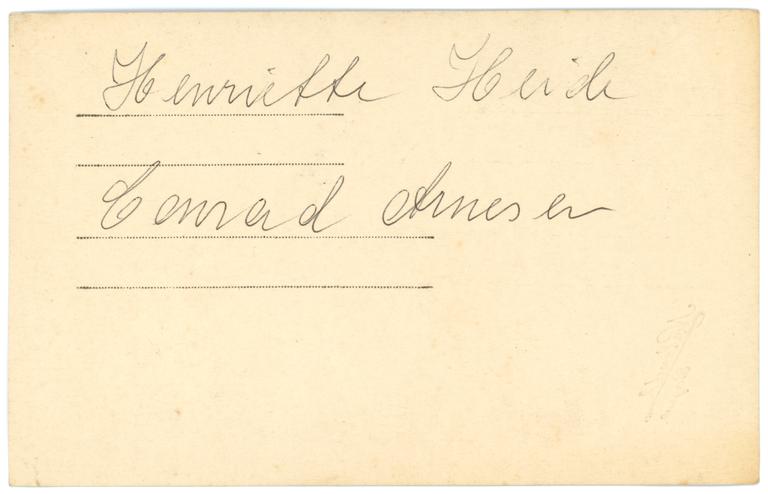 Henriette Heide
Conrad Arnesen